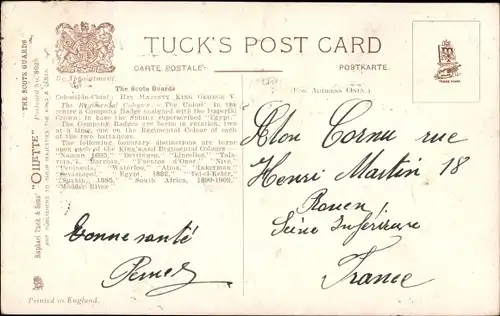 TUCK'S POST CARD
By Appointment.
CARTE POSTALE
POSTKARTE.
(FOR ADDRESS ONLY.)
TRADE MARK
"THE SCOTS GUARDS"
Postcard No. 8625
"OILETTE"
Raphael Tuck & Sons'
ART PUBLISHERS TO THEIR MAJESTIES THE KING & QUEEN.
The Scots Guards
Colonel-in-Chief: HIS MAJESTY KING GEORGE V.
The Regimental Colours—The Union: In the
centre a Company Badge ensigned with the Imperial
Crown; in base the Sphinx superscribed "Egypt."
The Company Badges are borne in rotation, two
at a time, one on the Regimental Colour of each
of the two battalions.
The following honorary distinctions are borne
upon each of the King's and Regimental Colours—
"Namur, 1695," "Dettingen," "Lincelles," "Tala-
vera," "Barrosa," "Fuentes d'Onor," "Nive,"
"Peninsula," "Waterloo," "Alma," "Inkerman,"
"Sevastopol," "Egypt, 1882," "Tel-el-Kebir,"
"Suakin, 1885," "South Africa, 1899-1902,"
"Modder River."
Bonne santé
Cornu rue
Henri Martin 18
Rouen
Seine Inférieure
France
Printed in England.